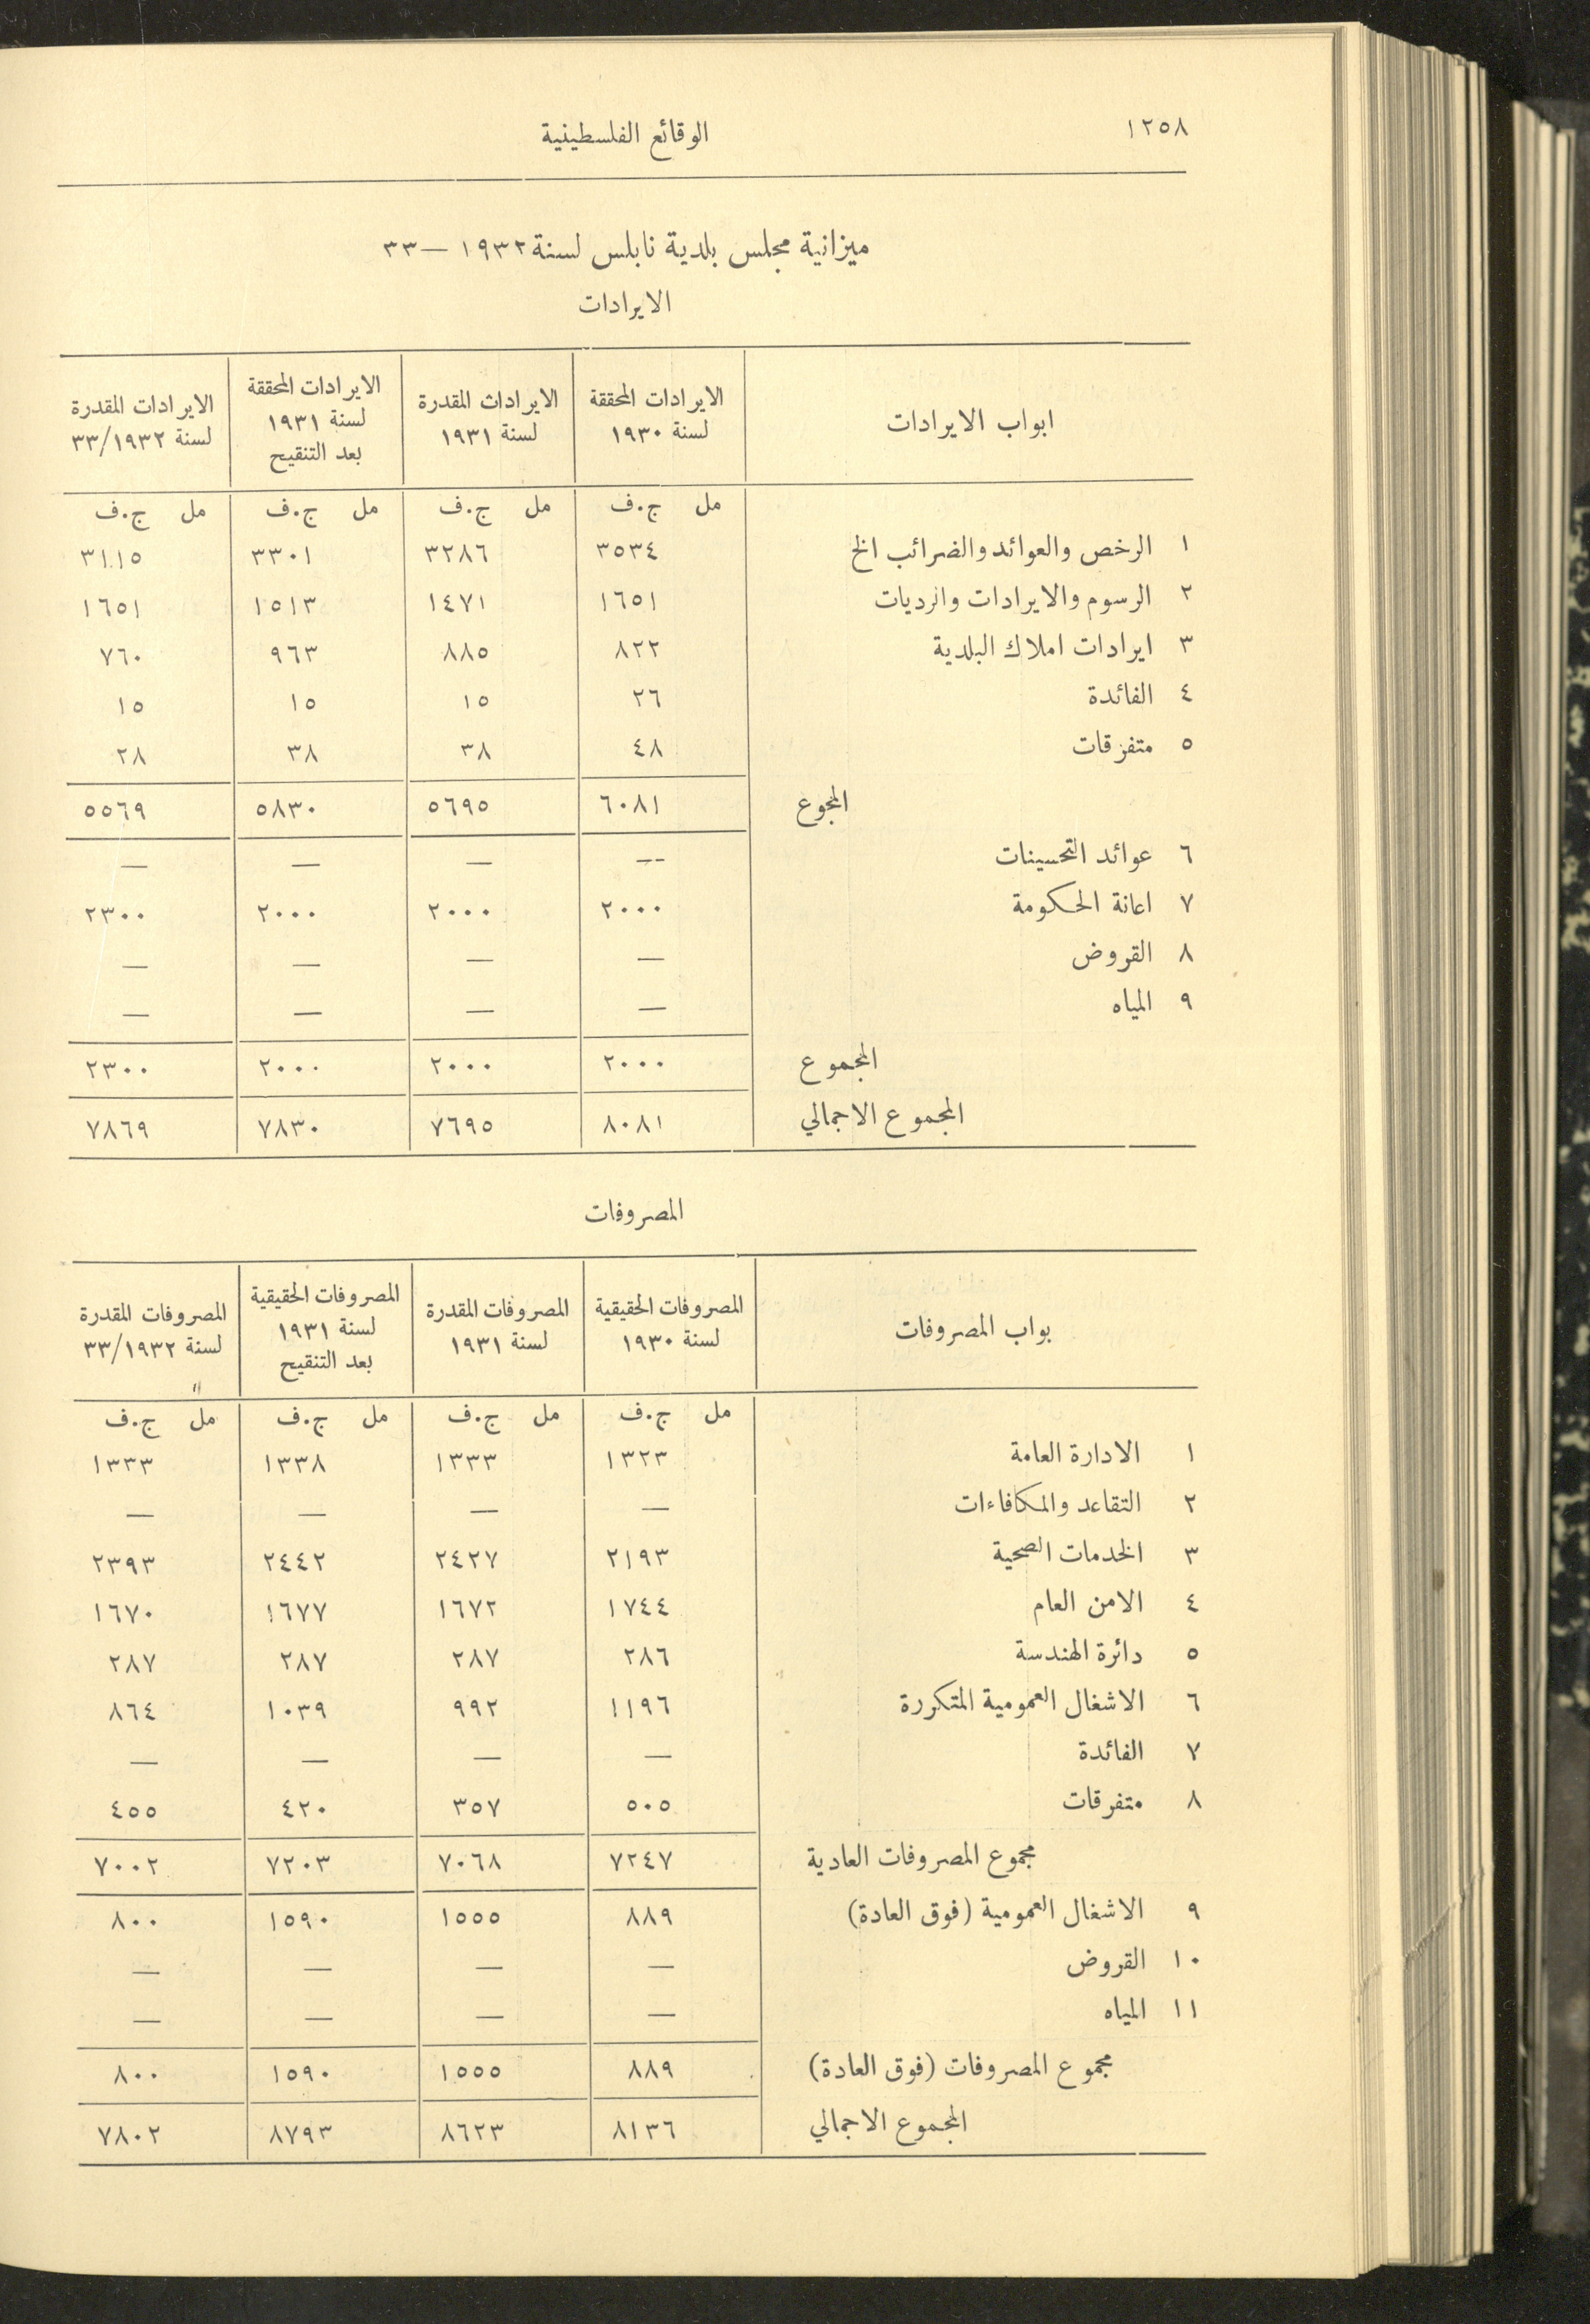 ١٢٥٨
الوقائع الفلسطينية
ميزانية مجلس بلدية نابلس لسنة ١٩٣٢ — ٣٣
الايرادات
ابواب الايرادات | الايرادات المحققة لسنة ١٩٣٠ | الايرادات المقدرة لسنة ١٩٣١ | الايرادات المحققة لسنة ١٩٣١ بعد التنقيح | الايرادات المقدرة لسنة ١٩٣٢/٣٣
مل ج.ف | مل ج.ف | مل ج.ف | مل ج.ف
١ الرخص والعوائد والضرائب الخ ٣٥٣٤ ٣٢٨٦ ٣٣٠١ ٣١١٥
٢ الرسوم والايرادات والرديات ١٦٥١ ١٤٧١ ١٥١٣ ١٦٥١
٣ ايرادات املاك البلدية ٨٢٢ ٨٨٥ ٩٦٣ ٧٦٠
٤ الفائدة ٢٦ ١٥ ١٥ ١٥
٥ متفرقات ٤٨ ٣٨ ٣٨ ٢٨
المجموع ٦٠٨١ ٥٦٩٥ ٥٨٣٠ ٥٥٦٩
٦ عوائد التحسينات — — — —
٧ اعانة الحكومة ٢٠٠٠ ٢٠٠٠ ٢٠٠٠ ٢٣٠٠
٨ القروض — — — —
٩ المياه — — — —
المجموع ٢٠٠٠ ٢٠٠٠ ٢٠٠٠ ٢٣٠٠
المجموع الاجمالي ٨٠٨١ ٧٦٩٥ ٧٨٣٠ ٧٨٦٩
المصروفات
بواب المصروفات | المصروفات الحقيقية لسنة ١٩٣٠ | المصروفات المقدرة لسنة ١٩٣١ | المصروفات الحقيقية لسنة ١٩٣١ بعد التنقيح | المصروفات المقدرة لسنة ١٩٣٢/٣٣
مل ج.ف | مل ج.ف | مل ج.ف | مل ج.ف
١ الادارة العامة ١٣٢٣ ١٣٣٣ ١٣٣٨ ١٣٣٣
٢ التقاعد والمكافاءات — — — —
٣ الخدمات الصحية ٢١٩٣ ٢٤٢٧ ٢٤٤٢ ٢٣٩٣
٤ الامن العام ١٧٤٤ ١٦٧٢ ١٦٧٧ ١٦٧٠
٥ دائرة الهندسة ٢٨٦ ٢٨٧ ٢٨٧ ٢٨٧
٦ الاشغال العمومية المتكررة ١١٩٦ ٩٩٢ ١٠٣٩ ٨٦٤
٧ الفائدة — — — —
٨ متفرقات ٥٠٥ ٣٥٧ ٤٢٠ ٤٥٥
مجموع المصروفات العادية ٧٢٤٧ ٧٠٦٨ ٧٢٠٣ ٧٠٠٢
٩ الاشغال العمومية (فوق العادة) ٨٨٩ ١٥٥٥ ١٥٩٠ ٨٠٠
١٠ القروض — — — —
١١ المياه — — — —
مجموع المصروفات (فوق العادة) ٨٨٩ ١٥٥٥ ١٥٩٠ ٨٠٠
المجموع الاجمالي ٨١٣٦ ٨٦٢٣ ٨٧٩٣ ٧٨٠٢